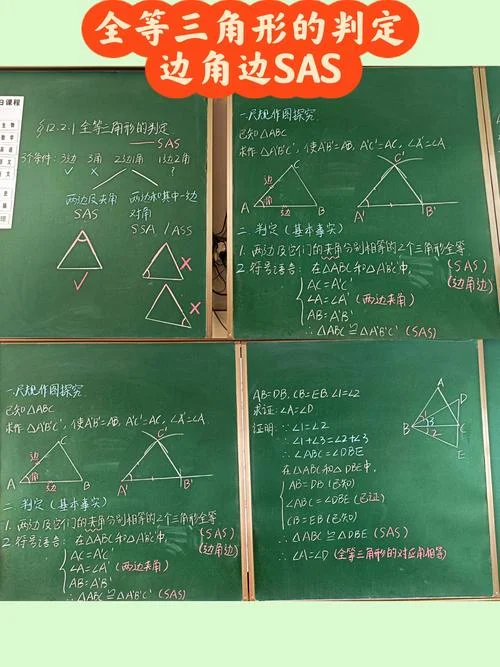 全等三角形的判定
边角边SAS
课程
§12.2.1 全等三角形的判定
——SAS
3个条件: 3边 3角 2边1角 1边2角
✓ × ?
两边及夹角
SAS
两边和其中一边
对角
SSA / ASS
✓
×
×
一.尺规作图探究.
已知△ABC
求作△A'B'C', 使A'B'=AB, A'C'=AC, ∠A'=∠A.
C
边
角
A 边 B
C'
A' B'
二.判定(基本事实)
1. 两边及它们的夹角分别相等的2个三角形全等
2. 符号语言: 在△ABC和△A'B'C'中, (SAS)
(边角边)
AC=A'C'
∠A=∠A' (两边夹角)
AB=A'B'
∴△ABC≌△A'B'C' (SAS)
一.尺规作图探究.
已知△ABC
求作△A'B'C', 使A'B'=AB, A'C'=AC, ∠A'=∠A.
C
边
角
A 边 B
C'
A' B'
二.判定(基本事实)
1. 两边及它们的夹角分别相等的2个三角形全等
2. 符号语言: 在△ABC和△A'B'C'中, (SAS)
(边角边)
AC=A'C'
∠A=∠A' (两边夹角)
AB=A'B'
∴△ABC≌△A'B'C' (SAS)
AB=DB, CB=EB, ∠1=∠2
求证: ∠A=∠D
证明: ∵∠1=∠2
∴∠1+∠3=∠2+∠3
∴∠ABC=∠DBE
在△ABC和△DBE中,
AB=DB (已知)
∠ABC=∠DBE (已证)
CB=EB (已知)
∴△ABC≌△DBE (SAS)
∴∠A=∠D (全等三角形的对应角相等)
A
D
B 1 3 2 C
E